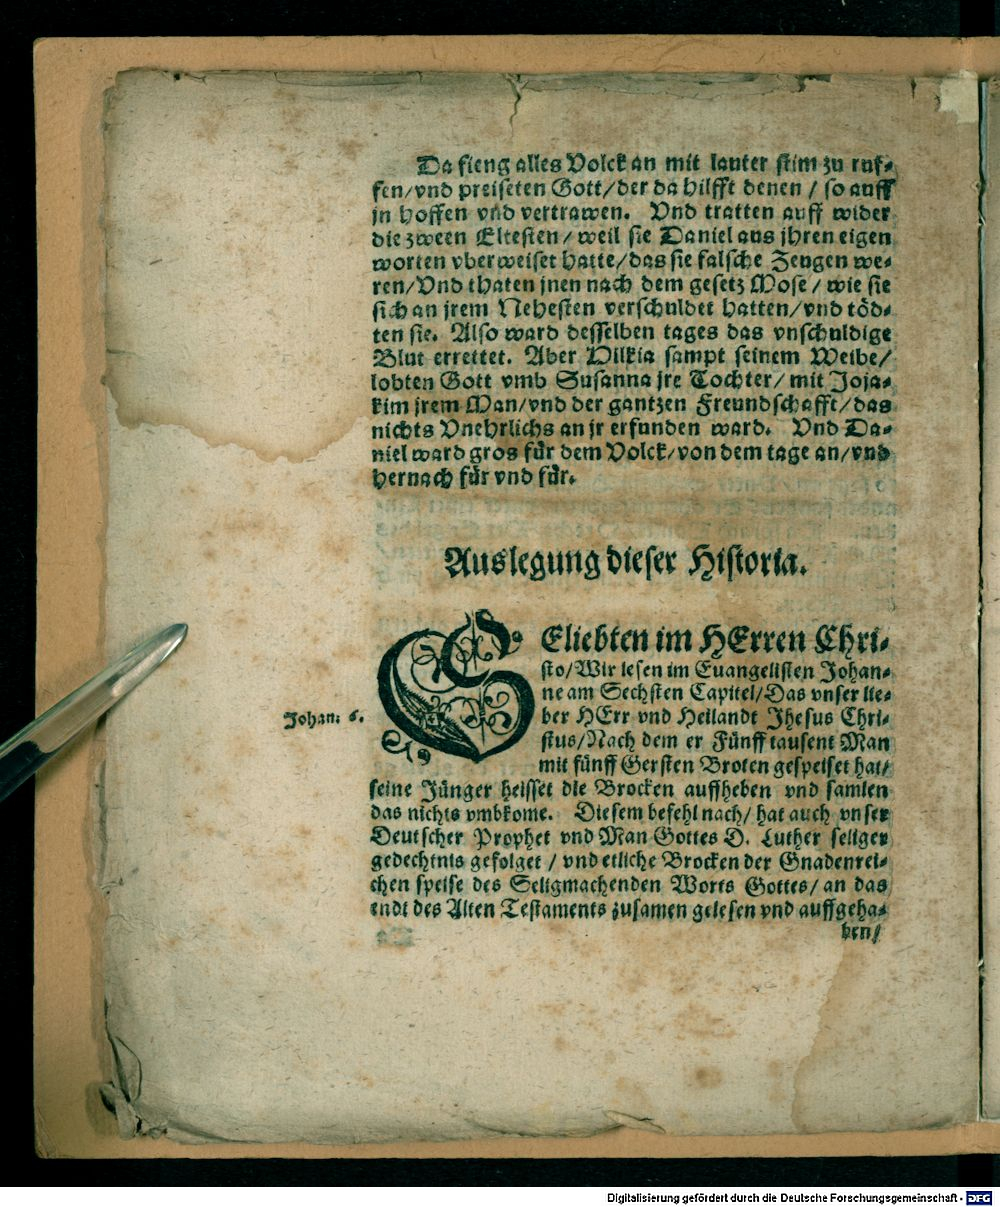 Da fieng alles Volck an mit lauter stim zu ruf-
fen/vnd preiseten Gott/der da hilfft denen / so auff
jn hoffen vnd vertrawen. Vnd tratten auff wider
die zween Eltesten / weil sie Daniel aus jhren eigen
worten vberweiset hatte/das sie falsche Zeugen we-
ren/Vnd thaten jnen nach dem gesetz Mose / wie sie
sich an jrem Nehesten verschuldet hatten/vnd töd-
ten sie. Also ward desselben tages das vnschuldige
Blut errettet. Aber Hilkia sampt seinem Weibe/
lobten Gott vmb Susanna jre Tochter/ mit Joja-
kim jrem Man/vnd der gantzen Freundschafft/das
nichts Vnehrlichs an jr erfunden ward. Vnd Da-
niel ward gros für dem Volck/von dem tage an/vnd
hernach für vnd für.
Auslegung dieser Historia.
GEliebten im HErren Chri-
sto/Wir lesen im Euangelisten Johan-
ne am Sechsten Capitel/Das vnser lie-
Johan: 6.
ber HErr vnd Heilandt Jhesus Chri-
stus/Nach dem er Fünff tausent Man
mit fünff Gersten Broten gespeiset hat/
seine Jünger heisset die Brocken auffheben vnd samlen
das nichts vmbkome. Diesem befehl nach/ hat auch vnser
Deutscher Prophet vnd Man Gottes D. Luther seliger
gedechtnis gefolget / vnd etliche Brocken der Gnadenrei-
chen speise des Seligmachenden Worts Gottes/ an das
endt des Alten Testaments zusamen gelesen vnd auffgeha-
ben/
Digitalisierung gefördert durch die Deutsche Forschungsgemeinschaft - DFG